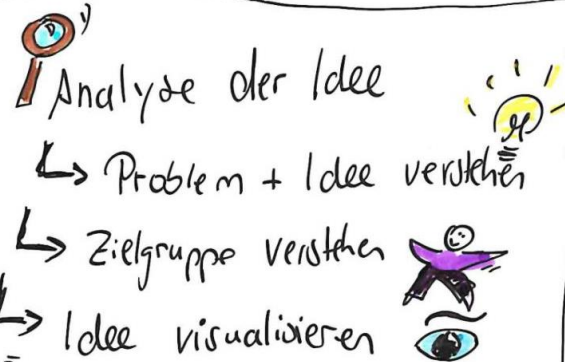 Analyse der Idee
↳ Problem + Idee verstehen
↳ Zielgruppe verstehen
↳ Idee visualisieren